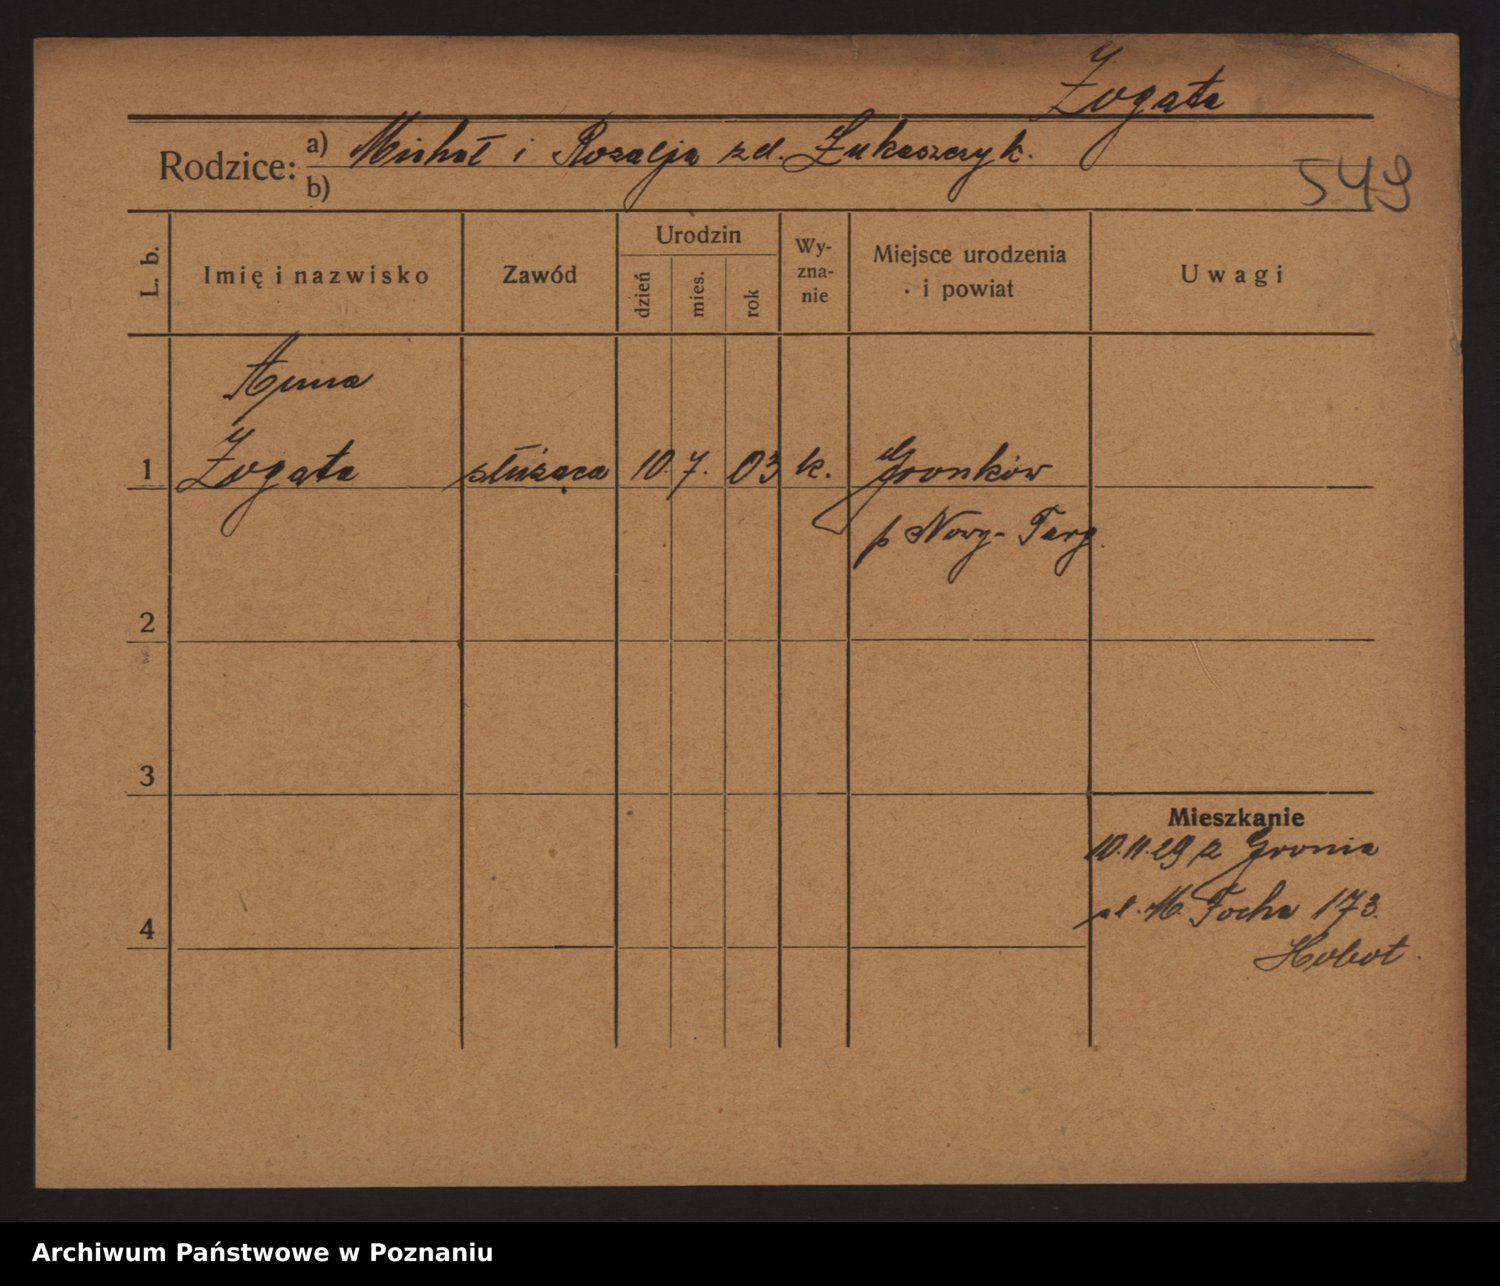 Zogata
Rodzice: a) Michał i Rozalja zd. Łukaszczyk.
b)
549
L. b. Imię i nazwisko Zawód Urodzin dzień mies. rok Wy-zna-nie Miejsce urodzenia i powiat Uwagi
Anna
1 Zogata służąca 10. 7. 03 k. Gronków
p Nowy-Targ.
2
3
Mieszkanie
10.11.29 z Gronia
M. Focha 173.
4
Hobot.
Archiwum Państwowe w Poznaniu